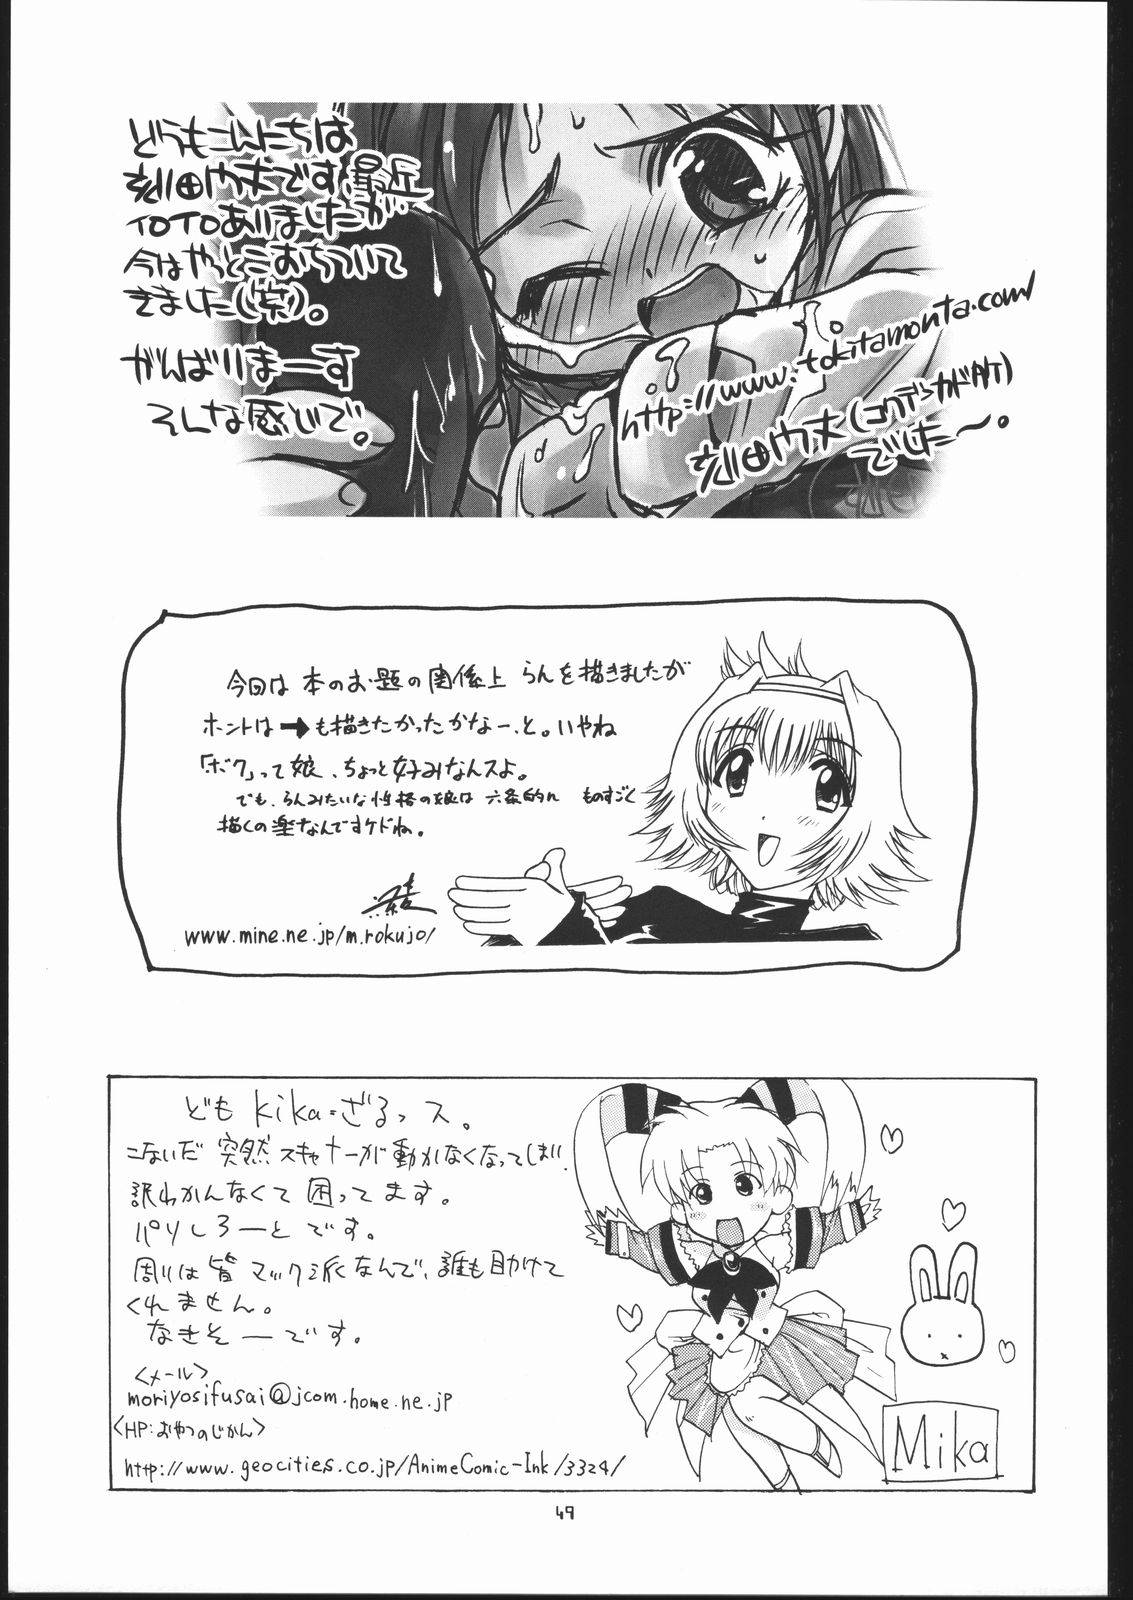 どうもこんにちは
刻田门丈です、最近
イロイロありましたが
今はやっとこおちついて
きました(笑)。
がんばりまーす
そんな感じで。
http://www.tokitamonta.com/
でしたー。
今回は 本のお題の関係上 らんを描きましたが
ホントは➡も描きたかったかなー、と。いやね
「ボク」って娘、ちょっと好みなんスよ。
でも、らんみたいな性格の娘は 六条的に ものすごく
描くの楽なんですケドね。
www.mine.ne.jp/m.rokujo/
ども kika=ざるっス。
こないだ 突然 スキャナーが動かなくなってしまい、
訳わかんなくて 困ってます。
バリしろーと です。
周りは皆 マック派なんで、誰も助けて
くれません。
なきそーです。
<メール>
moriyosifusai@jcom.home.ne.jp
<HP:おやつのじかん>
http://www.geocities.co.jp/AnimeComic-Ink/3324/
Mika
49